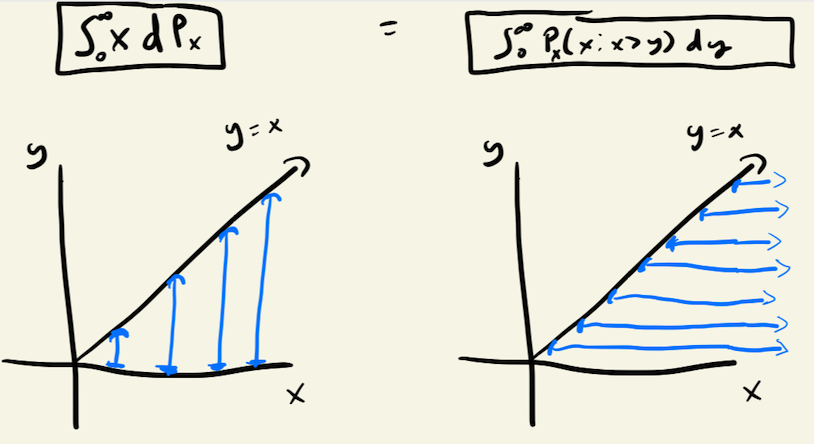 ∫₀^∞ x dPₓ = ∫₀^∞ Pₓ(x : x>y) dy
y=x y=x
y y
x x